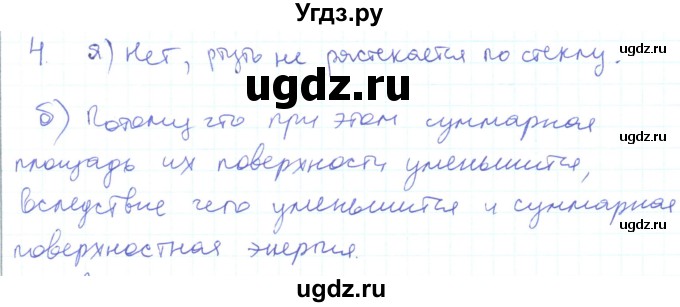 Угдз.ру
4. а) Нет, ртуть не растекается по стеклу.
ugdz.ru
ugdz.ru
б) Потому что при этом суммарная
ugdz.ru
площадь их поверхности уменьшится,
вследствие чего уменьшится и суммарная
ugdz.ru
ugdz.ru
поверхностная энергия.
ugdz.ru